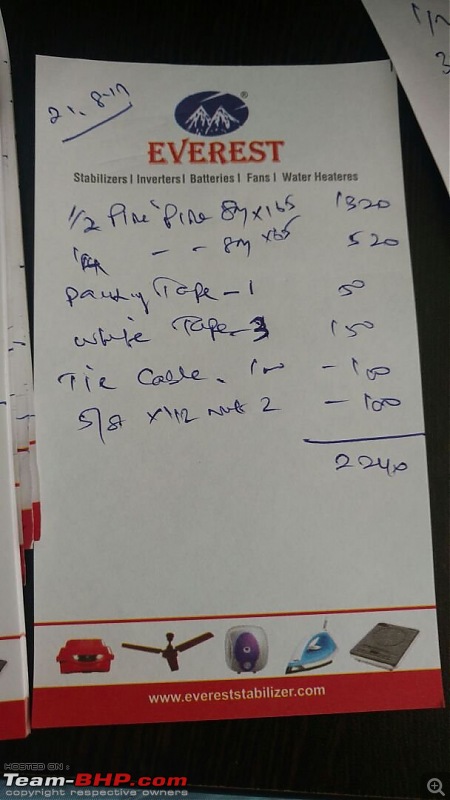 21.8-17
EVEREST
®
Stabilizers | Inverters | Batteries | Fans | Water Heateres
1/2 Pipe 8M x 165 1320
- - 8M x 65 520
Tape - 1 50
white Tape - 3 150
Tie Cable. 100 - 100
5/8 x 1/2 Nut 2 - 100
2240
www.evereststabilizer.com
HOSTED ON :
Team-BHP.com
copyright respective owners